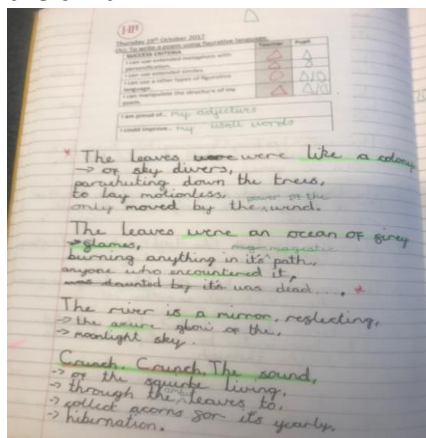 Thursday 19th October 2017
L.O. To write a poem using figurative language.
SUCCESS CRITERIA Teacher Pupil
I can use extended metaphors with
personification.
I can use extended similes.
I can use a other types of figurative
language.
I can manipulate the structure of the
poem.
I am proud of... my adjectives
I could improve... my words
* The leaves were were like a colony
→ of sky divers,
parachuting down the trees,
to lay motionless,
power of the
only moved by the wind.
The leaves were an ocean of firey
→ flames,
burning anything in it's path,
anyone who encountered it,
was daunted by it's was dead.... *
The river is a mirror, reflecting,
→ the azure glow of the,
→ moonlight sky.
Crunch. Crunch. The sound,
→ of the squirle living,
→ through the leaves to,
→ collect acorns for it's yearly,
→ hibernation.